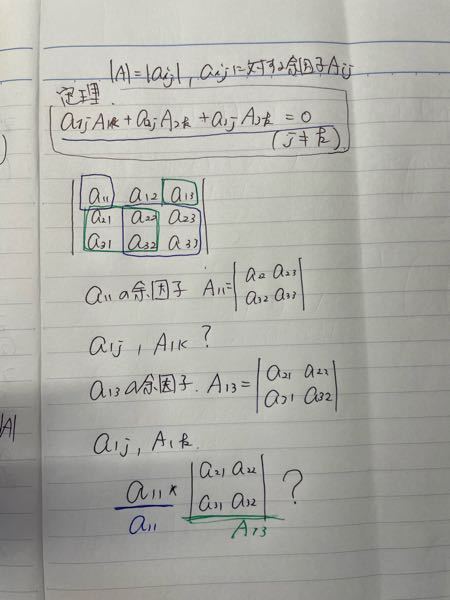 |A|=|aij|, aijに対する余因子Aij
定理.
a1jA1k+a2jA2k+a3jA3k=0
(j≠k)
a11 a12 a13
a21 a22 a23
a31 a32 a33
a11の余因子 A11=|a22 a23
a32 a33|
a1j, A1k?
a13の余因子. A13=|a21 a22
a31 a32|
a1j, A1k.
a11*|a21 a22
a31 a32|?
a11 A13
|A|